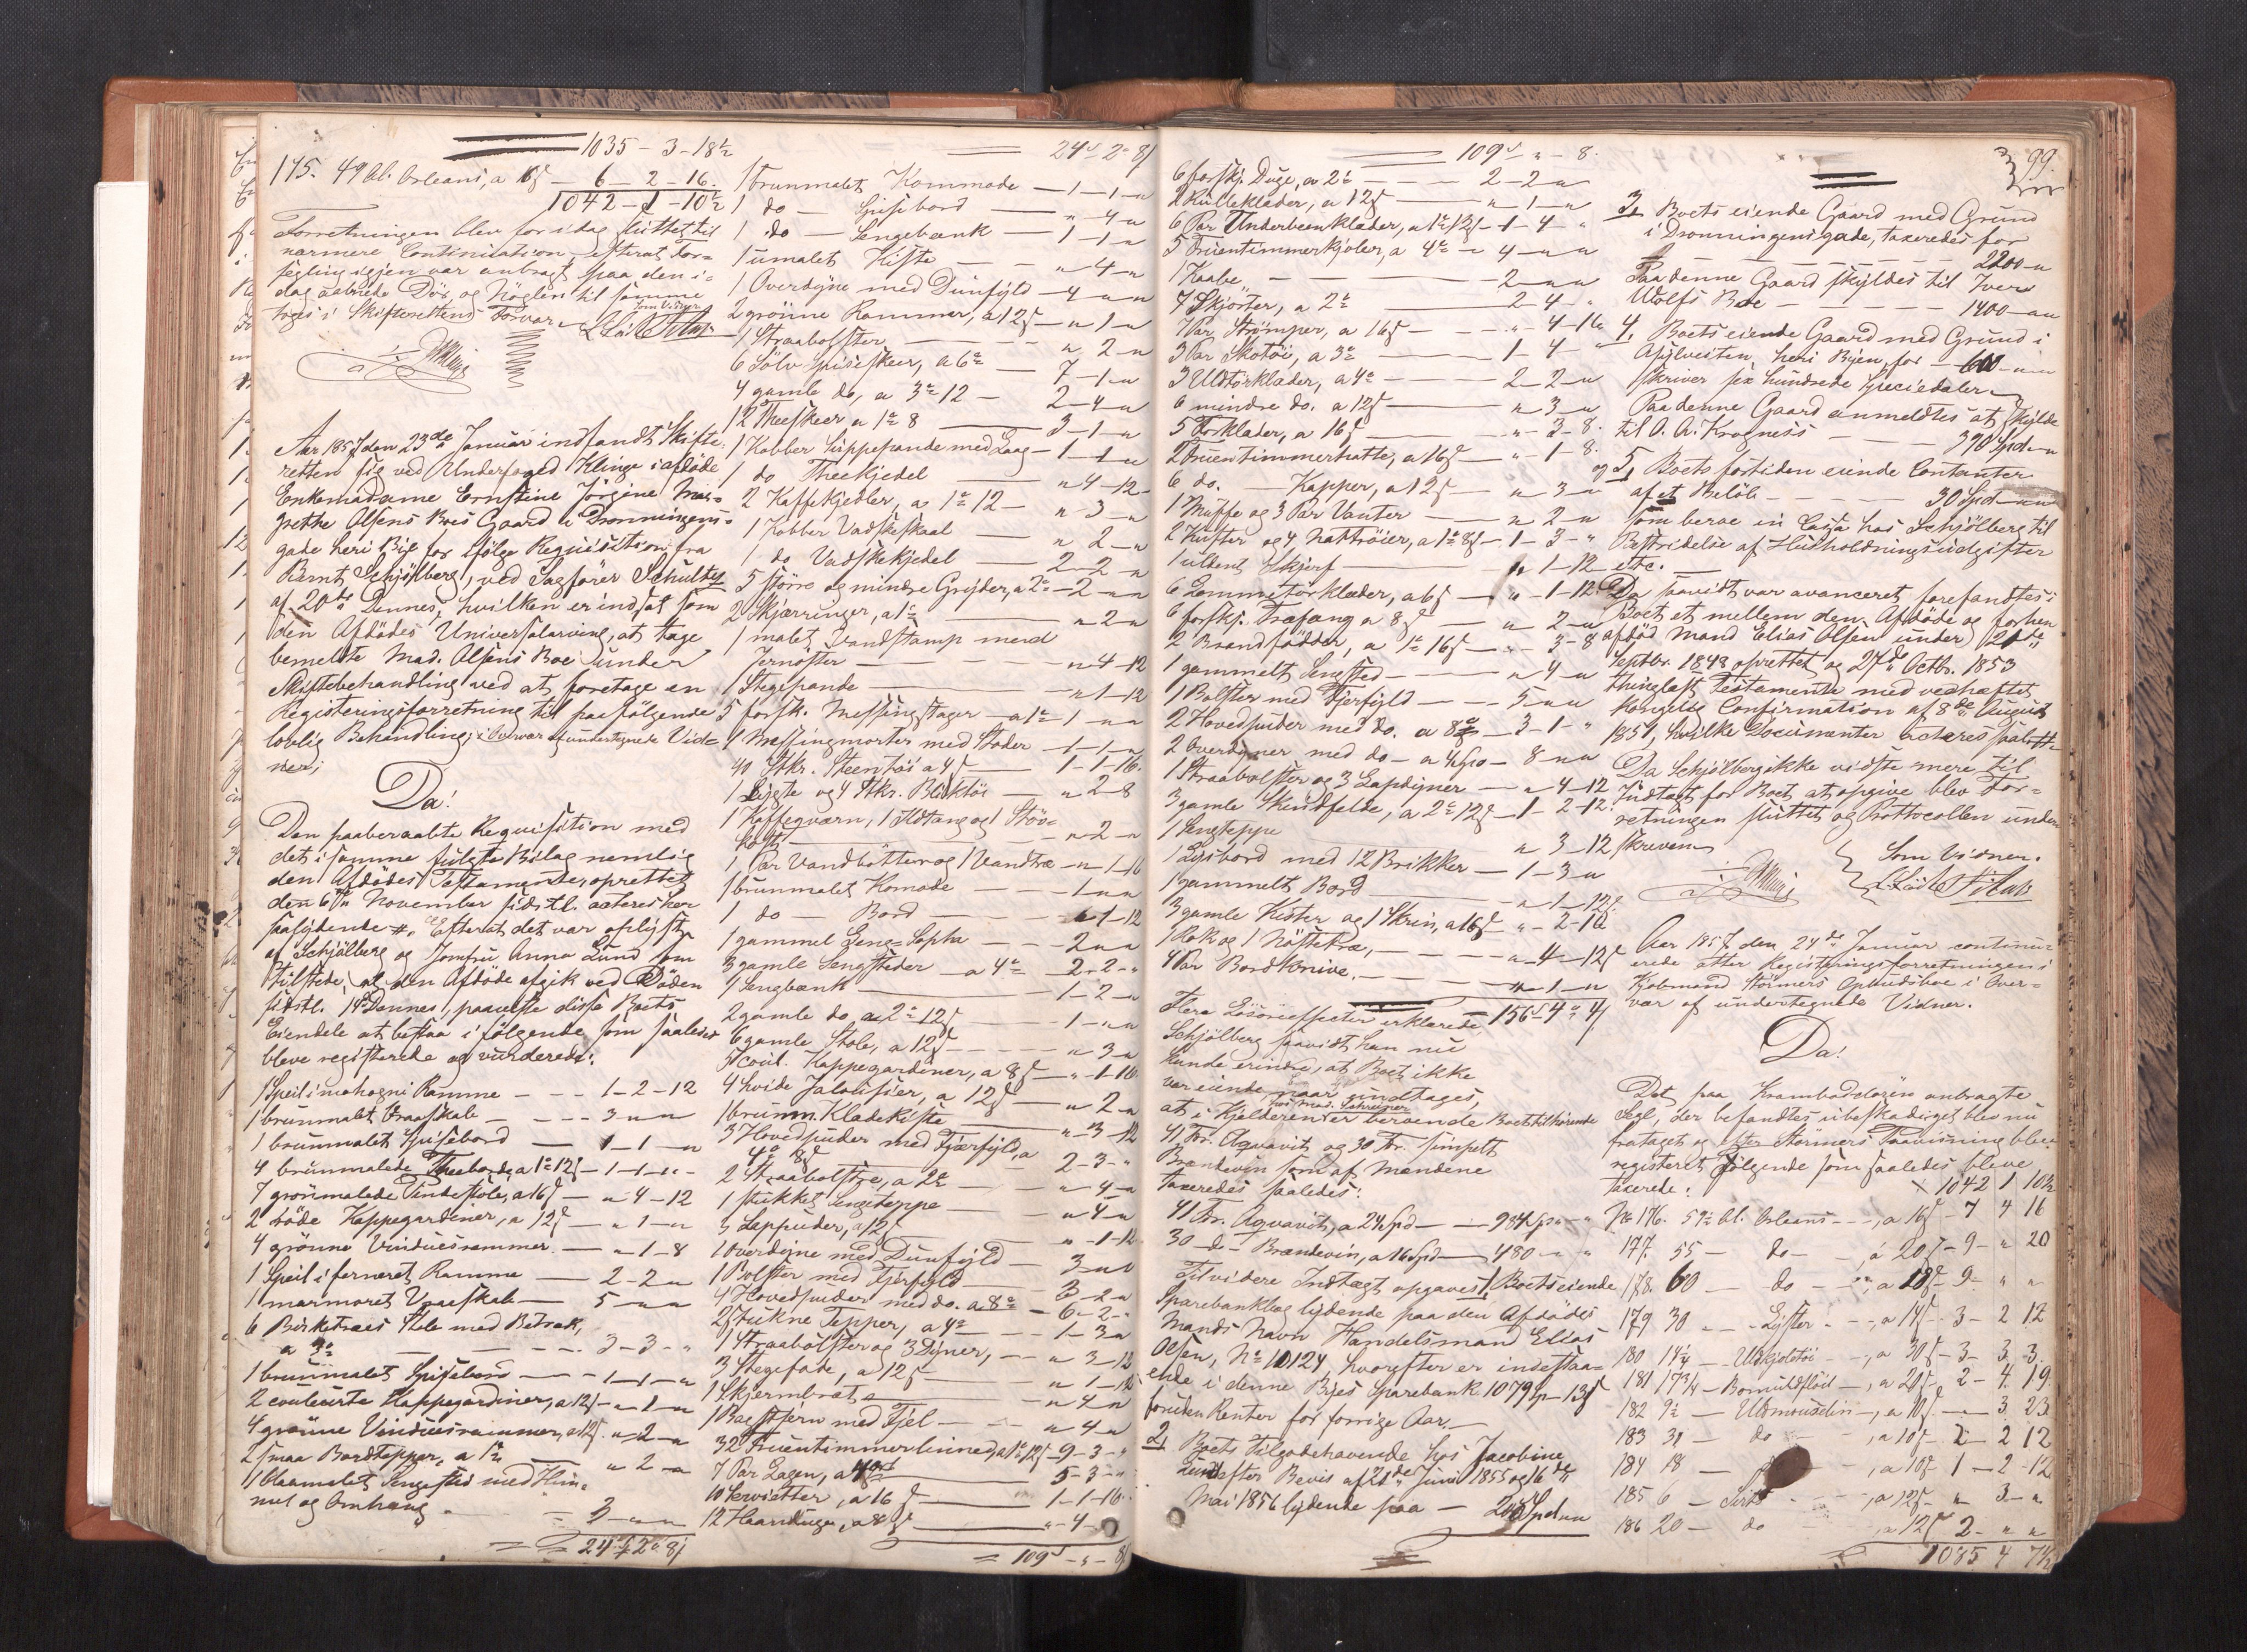 1035 - 3 - 18½
175. 49 Al. Orleans, a 16ß — 6 - 2 - 16.
1042 - 1 - 10½
Forretningen blev for idag sluttet til
nærmere Continuation, efterat For-
segling igjen var anbragt paa den i-
dag aabnede Dør, og Nøglen til samme
toges i Skifterettens Forvar.
Som Vidner
Aar 1857 den 23de Januar indfandt Skifte-
retten sig ved Underfoged Klinge i afdøde
Enkemadame Ernstine Jørgine Mar-
grethe Olsens Boes Gaard i Dronningens-
gade heri Byen for ifølge Requisition fra
Bernt Schjølberg, ved Sagfører Schultz
af 20de Dennes, hvilken er indsat som
den Afdødes Universalarving, at tage
bemeldte Mad. Olsens Boe under
Skiftebehandling ved at foretage en
Registreringsforretning til paafølgende
lovlig Behandling; i Overvær af undertegnede Vid-
ner;
Da!
Den paaberaabte Requisition med
det i samme fulgte Bilag nemlig
den Afdødes Testamente, oprettet
den 6te November sidstl. acteres her
saalydende #. Efterat det var oplyst
af Schjølberg og Jomfru Anna Lund som
tilstede, at den Afdøde afgik ved Døden
sidstl. 14 Dennes, paaviste disse Boets
Eiendele at bestaa i følgende som saaledes
bleve registerede og vurderede:
1 Speil i mahogni Ramme - - - 1 - 2 - 12
1 brunmalet Vraaskab - - - 3 - " - "
1 brunmalet Spisebord — 1 - 1 - "
4 brunmalede Theeborde, a 1 12ß - 1 - 1 - "
7 grønmalede Vindestole, a 16ß — " - 4 - 12
2 røde Kappegardiner, a 12ß - " - 1 - "
4 grønne Vinduesrammer — " - 1 - 8
1 Speil i ferneret Ramme — 2 - 2 - "
1 marmoret Vraaskab — 5 - " - "
6 Birketræes Stole med Betræk,
a 3 — 3 - 3 - "
1 brunmalet Spisebord - - 1 - 1 - "
2 couleurte Kappegardiner, a 12ß - " - 1 - "
4 grønne Vinduesrammer, a 12ß. " - 2 - "
2 smaa Bordtepper, a 1 — " 2 - "
1 blaamalet Sengested med Him-
mel og Omhæng - 3 - " - "
24 2 8ß
24 2 8ß
1 brunmalet Kommode — 1 - 1 - "
1 do — Spisebord — " - 4 - "
1 do — Sengebænk — 1 - 1 - "
1 umalet Kiste — " - 4 - "
1 Overdyne med Dunfyld - 4 - " - "
2 grønne Rammer, a 12ß - " - 1 - "
1 Straabolster — " 2 - "
6 Sølv Spiseskeer, a 6 — 7 - 1 - "
4 gamle do, a 3 12 — 2 - 4 - "
12 Theeskeer a 1 8 — 3 - 1 - "
1 Kobber Suppepande med Laag - 1 - 1 - "
1 do Theekjedel — " 4 - 12 -
2 Kaffekjedler, a 1 12 — " - 3 - "
1 Kobber Vadskeskaal — " 2 - "
1 do Vadskekjedel — 2 - 2 - "
5 større og mindre Gryder, a 2 - 2 - " - "
2 Skjærringer, a 1 — " 2 - "
1 malet Vandstamp med
Jernøster — " - 4 - 12
1 Stegepande — " - 1 - 12
5 forsk. Messingstager — a 1 - 1 - " - "
1 Messingmorter med Støder — 1 - 1 - "
40 Stkr. Steentøi a 4ß — 1 - 1 - 16.
1 Løgte og 4 Stkr. Bliktøi — " 2 - 8
1 Kaffeqværn, 1 Ildtang og 1 Støv-
kost — " - 2 - "
1 Par Vandbøtter og 1 Vandtræ - " - 1 - 16
1 brunmalet Komode — - 1 - " - "
1 do — Bord — - 1 - 12
1 gammel Seng-Sopha — - 2 - " - "
3 gamle Sengesteder — a 4 - 2 - 2 - "
1 Sengbænk — 1 - 2 - "
2 gamle do, a 2 12ß — 1 - " - "
6 gamle Stole, a 12ß — " 3 - "
5 coul. Kappegardiner, a 8ß — " - 1 - 16
4 hvide Jalousier, a 12ß — " 2 - "
1 brunm. Klædekiste — " - 3 - 12
3 Hovedpuder med Fjærfyld, a
4 8ß — 2 - 3 - "
2 Straabolstre, a 2 — " - 4 - "
1 stukket Sengeteppe — " - 4 - "
3 Lappuder, a 12ß — " - 1 - 12
1 Overdyne med Dunfyld — 3 - " - "
1 Bolster med Fjerfyld — 3 - " - "
4 Hovedpuder med do. a 8 - 6 - 2 - "
2 Stukne Tepper, a 4 — 1 - 3 - "
1 Straabolster og 3 Dyner, — " 3 - 12
3 Stegefade, a 12ß — " 1 - 12
1 Skjermbræt — " - 4 - "
1 Bagstjern med Fjel — " - 4 - "
32 Fruentimmerlinned, a 1 12ß - 9 - 3 - "
7 Par Lagen, a 4 — 5 - 3 - "
10 Servietter, a 16ß — 1 - 1 - 16
12 Haanduge, a 8ß — " - 4 - "
109 - " - 8ß
109 - " - 8.
6 forskj. Duge, a 2 — 2 - 2 - "
2 Rulleklæder, a 12ß — " - 1 - "
6 Par Underbeenklæder, a 1 12ß - 1 - 4 - "
5 Fruentimmerkjoler, a 4 — 4 - " - "
1 Kaabe — 2 - " - "
7 Skjørter, a 2 — 2 - 4 - "
7 Par Strømper, a 16ß — " - 4 - 16
3 Par Skotøi, a 3 — 1 - 4 - "
3 Uldtørklæder, a 4 — 2 - 2 - "
6 mindre do. a 12ß — " 3 - "
5 Forklæder, a 16ß — " - 3 - 8.
2 Fruentimmerhatte, a 16ß - " - 1 - 8.
6 do. — Kapper, a 12ß — " 3 - "
1 Muffe og 3 Par Vanter — " 2 - "
2 Kufter og 4 Nattrøier, a 1 8ß - 1 - 3 - "
1 uldent Skjerf — " 1 - 12
6 Lommetørklæder, a 6ß — " - 1 - 12
6 forskj. Træfang a 8ß — " 2 - "
2 Brandfødder, a 1 16ß - " - 3 - 8
1 gammelt Sengsted — " 4 - "
1 Bolster med Fjerfyld — 5 - " - "
2 Hovedpuder med do. a 8 - 3 - 1 - "
2 Overdyner med do - a 4 Spd - 8 - " - "
1 Straabolster og 3 Lapdyner — " 4 - 12
3 gamle Skindfelde, a 2 12ß - 1 - 2 - 12
1 Sengteppe — " 3 - 12
1 Lysbord med 12 Brikker - 1 - 3 - "
1 gammelt Bord — " 1 - 12
3 gamle Kister og 1 Skrin, a 16ß " - 2 - 16
1 Rok og 1 Høstetræ, — " - 4 - 12ß
4 Par Bordknive, — " 1 - "
156 4 4ß
Flere Løsøreeffecter erklærede
Schjølberg saavidt han nu
kunde erindre, at Boet ikke
var eiende, naar undtages,
at i Kjelderen hos Mad. Schreiner er beroende Boet tilhørende
41 Tr. Aqvavit og 30 Tr. simpelt
Brændeviin som af Mændene
taxeredes saaledes:
41 Tr. Aqvavit, a 24 Spd — 984 Spd - "
30 do - Brændeviin, a 16 Spd — 480 - " - "
Til videre Indtægt opgaves 1, Boets eiende
Sparebankbog lydende paa den Afdødes
Mands Navn Handelsmand Elias
Olsen, No 10124, hvorefter er indestaa-
ende i denne Byes Sparebank 1079 Sp - 13ß
foruden Renter for forrige Aar. —
2, Boets Tilgodehavende hos Jacobine
Lund efter Bevis af 21de Juni 1855 og 16de
Mai 1856 lydende paa — 200 Spd " "
99.
3, Boets eiende Gaard med Grund
i Dronningensgade, taxeredes for
— 2200 - "
Paa denne Gaard skyldes til Iver
Wolfs Boe — 1400 - " "
4, Boets eiende Gaard med Grund i
Asylveiten, heri Byen, for — 600 - " - "
skriver sex hundrede Speciedaler.
Paa denne Gaard anmeldtes at skylde
til O. A. Krogness — 390 Spd - "
og 5, Boets fortiden eiende Contanter
af et Beløb — 30 Spd - " - "
som beroe in Cassa hos Schjølberg til
Bestridelse af Huusholdningsudgifter
etc.
Da saavidt var avanceret forefandtes i
Boet et mellem den Afdøde og forhen
afdød Mand Elias Olsen under 21de
Septbr. 1848 oprettet og 27de Octbr. 1853
thinglæst Testamente med vedhæftet
kongelig Confirmation af 8de August
1851, hvilke Documenter acteres saal. #
Da Schjølberg ikke vidste mere til
Indtægt for Boet at opgive blev For-
retningen sluttet og Prottocollen under-
skreven
Som Vidner.
Aar 1857 den 24de Januar continu-
erede atter Registreringsforretningen i
Kjøbmand Størmers Opbudsboe i Over-
vær af undertegnede Vidner.
Da!
Det paa Kramboddøren anbragte
Segl, der befandtes ubeskadiget blev nu
frataget og efter Størmers Paavisning blev
registeret følgende som saaledes bleve
taxerede:
1042 1 10½
No 176. 59½ Al. Orleans - - -, a 16ß - 7 4 16
177. 55 — do — , á 20ß - 9 - " 20
178. 60 — do — , a 18ß - 9 - " "
179 30 — Lister - -, a 14ß - 3 - 2 12
180 14¼ — Uldkjoletøi - -, a 30ß - 3 - 3 3.
181 17¾ — Bomuldfløil - , a 20ß 2 - 4. 19
182 9½ — Uldmouselin - , a 10ß. — 3 23
183 31 — do — , a 10ß 2 - 2 12
184 18 — , a 10ß 1 - 2 - 12
185 6 — Sirts - - , a 12ß " 3 - "
186 20 — do , a 12ß 2 - " "
1085 4 7½